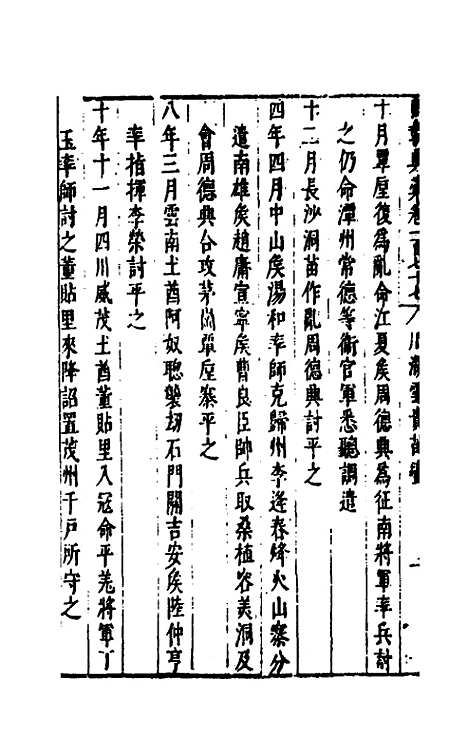 十月覃垕復為亂命江夏矦周德興為征南將軍率兵討
之仍命潭州常德等衛官軍悉聽調遣
十二月長沙洞苗作亂周德興討平之
四年四月中山矦湯和率師克歸州李逢春烽火山寨分
遣南雄矦趙庸宣寧矦曹良臣帥兵取桑植容美洞及
會周德興合攻茅岡覃垕寨平之
八年三月雲南土酋阿奴聰襲刼石門關吉安矦陸仲亨
率指揮李榮討平之
十年十一月四川威茂土酋董貼里入寇命平羌將軍丁
玉率師討之董貼里來降詔置茂州千戶所守之